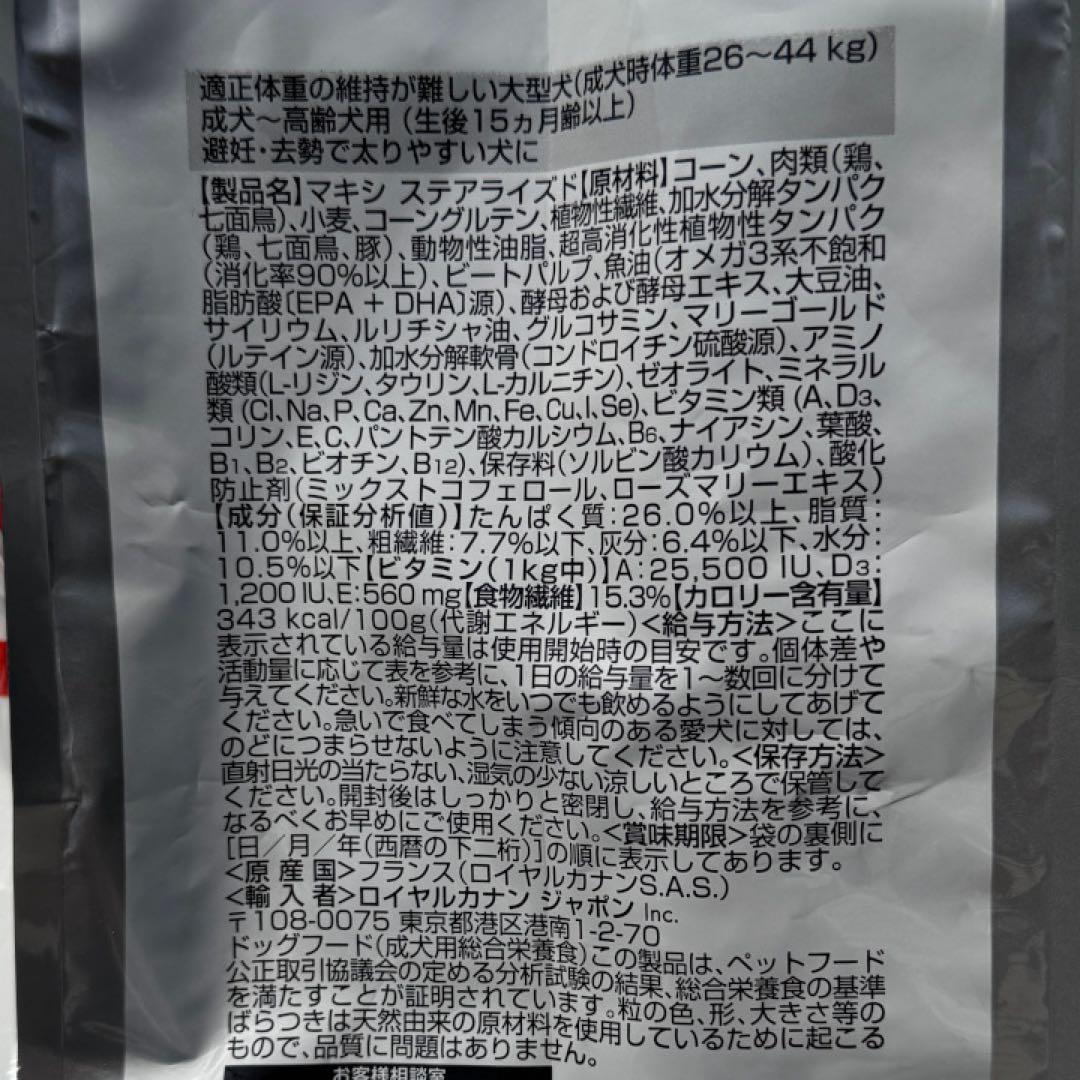 適正体重の維持が難しい大型犬(成犬時体重26～44 kg)
成犬～高齢犬用 (生後15ヵ月齢以上)
避妊・去勢で太りやすい犬に
【製品名】マキシ ステアライズド【原材料】コーン、肉類(鶏、
七面鳥)、小麦、コーングルテン、植物性繊維、加水分解タンパク
(鶏、七面鳥、豚)、動物性油脂、超高消化性植物性タンパク
(消化率90%以上)、ビートパルプ、魚油(オメガ3系不飽和
脂肪酸〔EPA + DHA〕源)、酵母および酵母エキス、大豆油、
サイリウム、ルリチシャ油、グルコサミン、マリーゴールド
(ルテイン源)、加水分解軟骨(コンドロイチン硫酸源)、アミノ
酸類(L-リジン、タウリン、L-カルニチン)、ゼオライト、ミネラル
類 (Cl、Na、P、Ca、Zn、Mn、Fe、Cu、I、Se)、ビタミン類 (A、D3、
コリン、E、C、パントテン酸カルシウム、B6、ナイアシン、葉酸、
B1、B2、ビオチン、B12)、保存料(ソルビン酸カリウム)、酸化
防止剤(ミックストコフェロール、ローズマリーエキス)
【成分(保証分析値)】たんぱく質:26.0%以上、脂質:
11.0%以上、粗繊維:7.7%以下、灰分:6.4%以下、水分:
10.5%以下【ビタミン(1kg中)】A:25,500 IU、D3:
1,200 IU、E:560 mg【食物繊維】15.3%【カロリー含有量】
343 kcal/100g(代謝エネルギー)<給与方法>ここに
表示されている給与量は使用開始時の目安です。個体差や
活動量に応じて表を参考に、1日の給与量を1～数回に分けて
与えてください。新鮮な水をいつでも飲めるようにしてあげて
ください。急いで食べてしまう傾向のある愛犬に対しては、
のどにつまらせないように注意してください。<保存方法>
直射日光の当たらない、湿気の少ない涼しいところで保管して
ください。開封後はしっかりと密閉し、給与方法を参考に、
なるべくお早めにご使用ください。<賞味期限>袋の裏側に
[日／月／年(西暦の下二桁)]の順に表示してあります。
<原 産 国>フランス(ロイヤルカナンS.A.S.)
<輸 入 者>ロイヤルカナン ジャポン Inc.
〒108-0075 東京都港区港南1-2-70
ドッグフード(成犬用総合栄養食)この製品は、ペットフード
公正取引協議会の定める分析試験の結果、総合栄養食の基準
を満たすことが証明されています。粒の色、形、大きさ等の
ばらつきは天然由来の原材料を使用しているために起こる
もので、品質に問題はありません。
お客様相談室